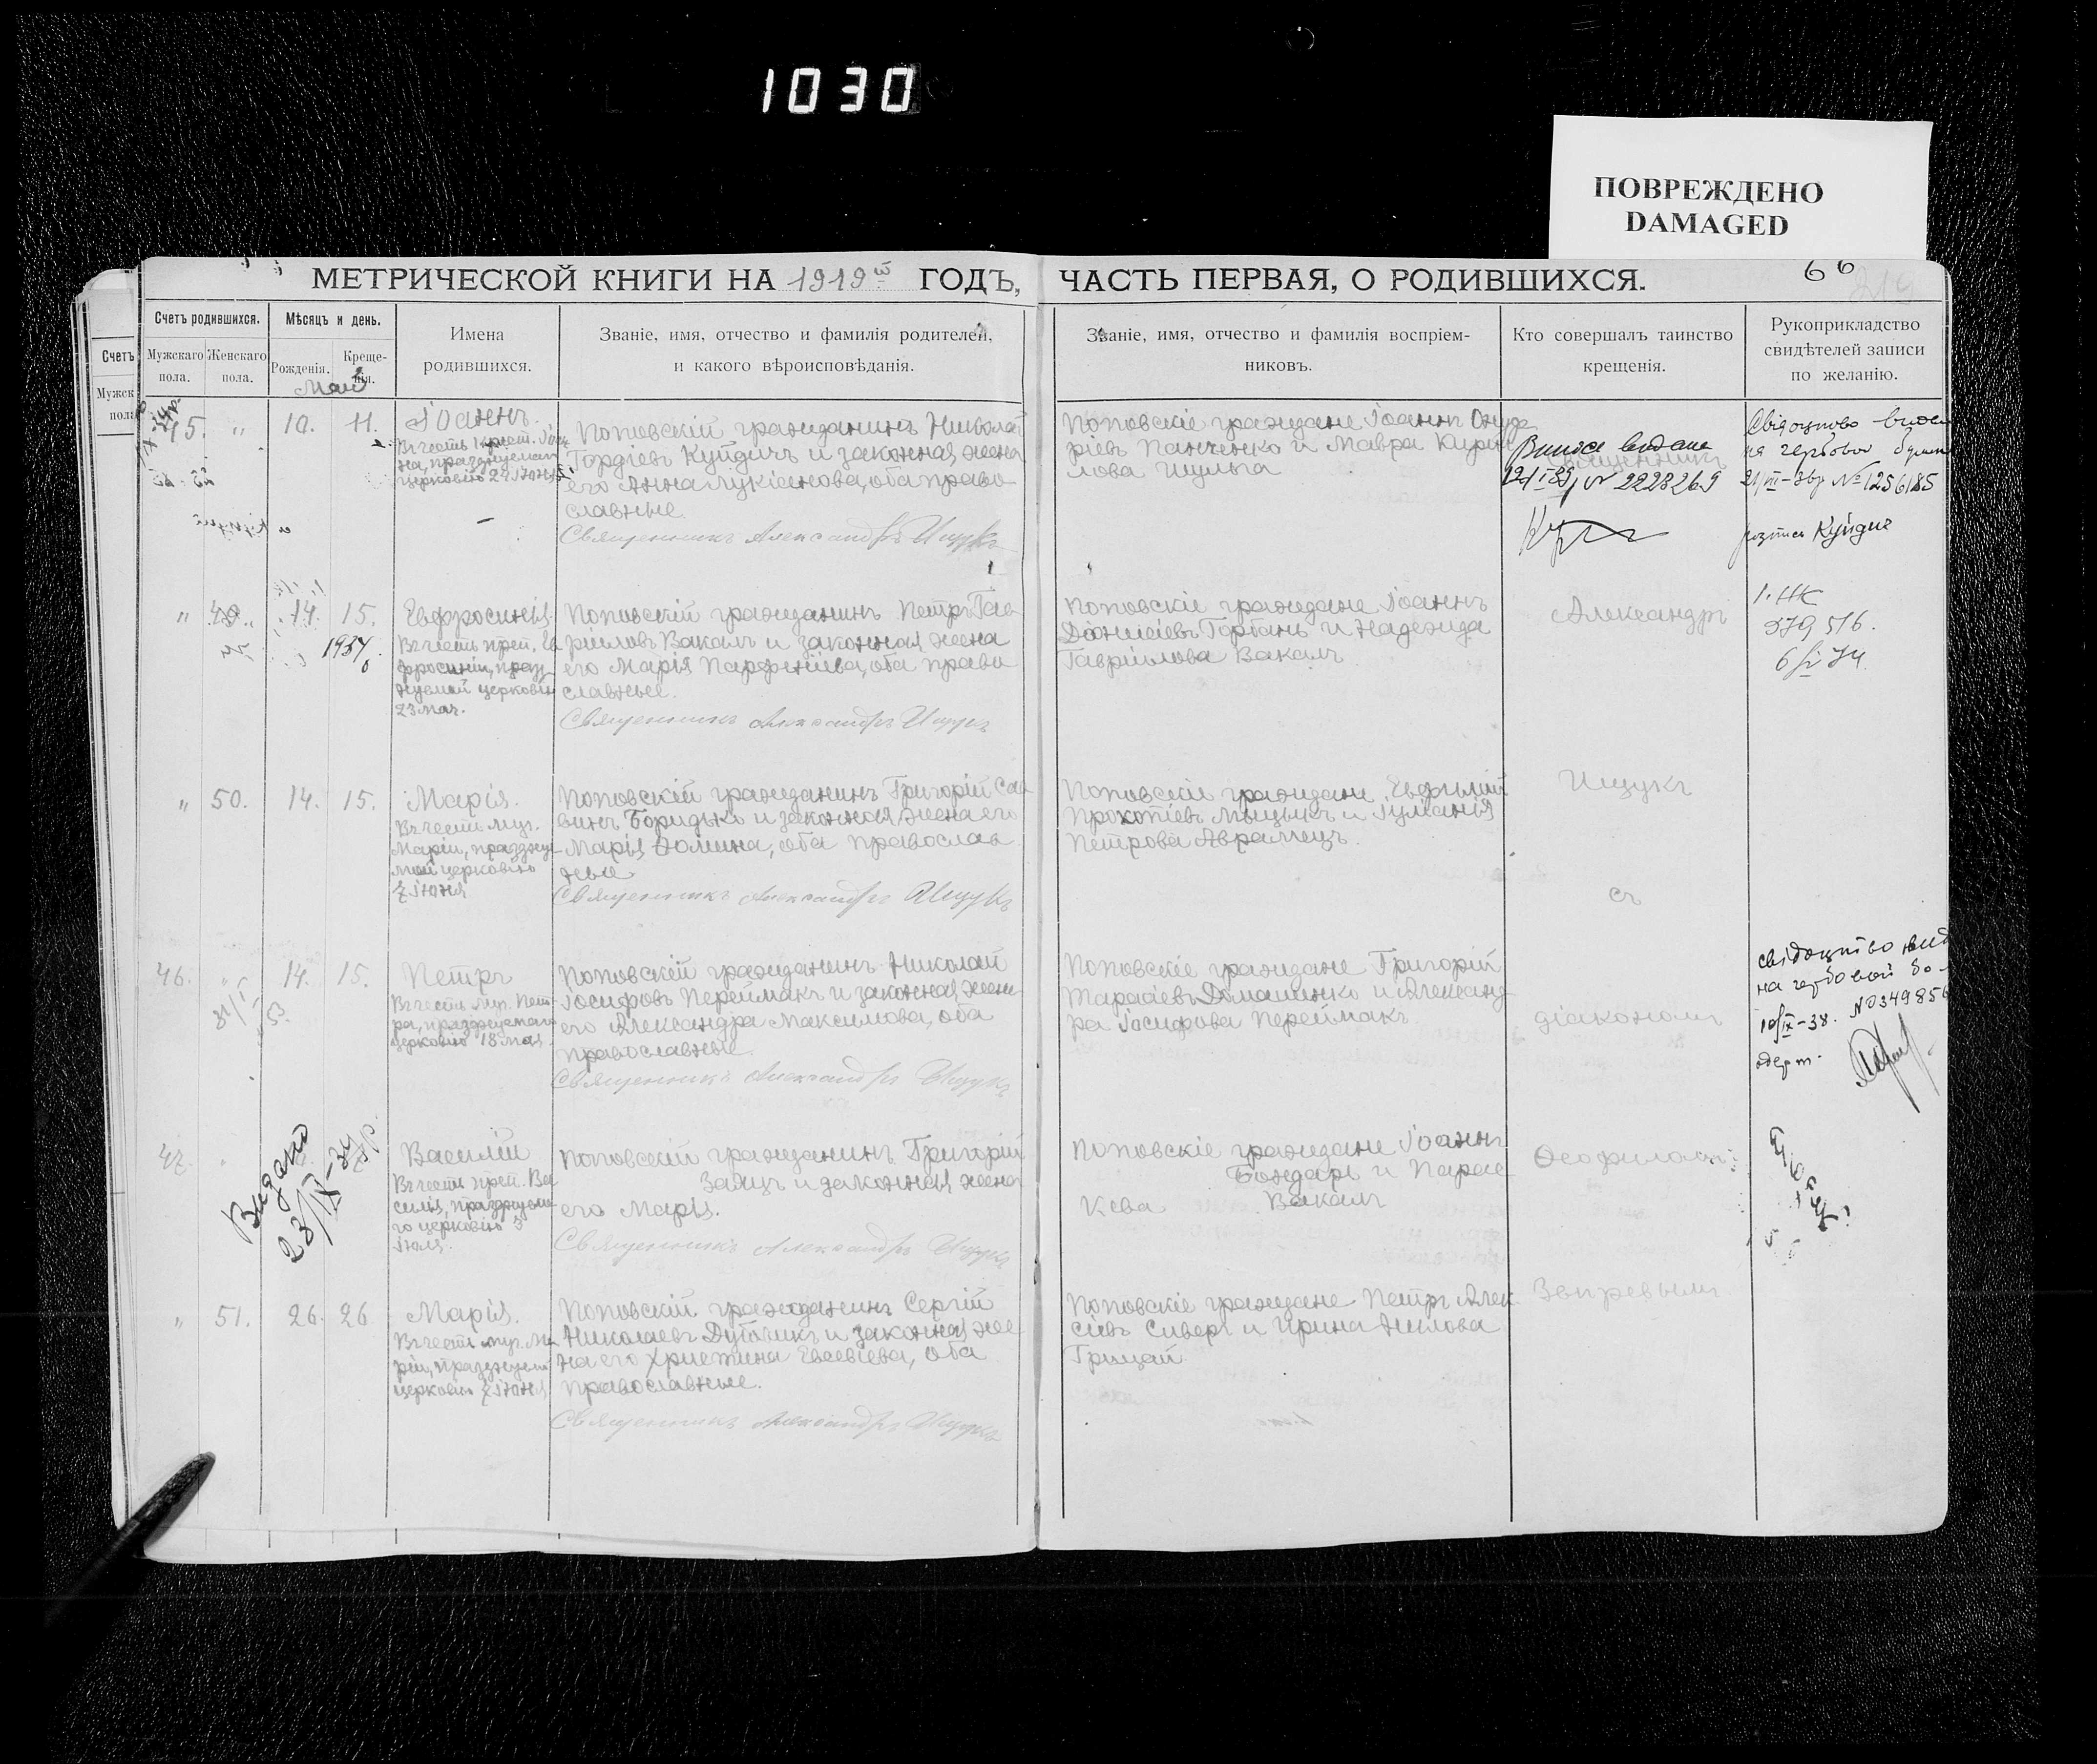 1030
ПОВРЕЖДЕНО
DAMAGED
МЕТРИЧЕСКОЙ КНИГИ НА 1919й ГОДЪ,
ЧАСТЬ ПЕРВАЯ, О РОДИВШИХСЯ.
66
219
Счетъ
Мужск
пола
Счетъ родившихся.
Мужскаго пола.
Женскаго пола.
Мѣсяцъ и день.
Рожденія.
Креще-
нія.
Май
Имена
родившихся.
Званіе, имя, отчество и фамилія родителей,
и какого вѣроисповѣданія.
Званіе, имя, отчество и фамилія воспріем-
никовъ.
Кто совершалъ таинство
крещенія.
Рукоприкладство
свидѣтелей записи
по желанію.
45. " 10. 11.
Іоаннъ.
Въ честь Крест. Іоан
на, празднуемаго
церковію 24 Іюня
Поповскій гражданинъ Николай
Гордіевъ Куйдичъ и законная жена
его Анна Лукіанова, оба право
славные.
Священникъ Александръ Ищукъ
Поповскіе граждане Іоаннъ Онуф
ріевъ Панченко и Мавра Кирил
лова Шульга
Священникъ
№ 2228269
на гербовои
№ 1256185
Куйдич
" 49. 14. 15.
1934
Евфросинія.
Въ честь преп. Ев
фросиніи, празд
нуемой церковію
23 мая.
Поповскій гражданинъ Петръ Гав
риловъ Вакалъ и законная жена
его Марія Парфеніева, оба право
славные.
Священникъ Александръ Ищукъ
Поповскіе граждане Іоаннъ
Діонисіевъ Гортань и Надежда
Гавріилова Вакалъ
Александръ
379516.
" 50. 14. 15.
Марія.
Въ честь муч.
Маріи, празднуе
мой церковію
7 Іюня
Поповскій гражданинъ Григорій Сав
винъ Боридько и законная жена его
Марія Фомина, оба православ
ные
Священникъ Александръ Ищукъ
Поповскіе граждане Евфимій
Прокопіевъ Мыцыкъ и Іуліанія
Петрова Аврамецъ.
Ищукъ
съ
46. " 14. 15.
Петръ
Въ честь муч. Пет-
ра, празднуемаго
церковію 18 мая.
Поповскій гражданинъ Николай
Іосифовъ Переймакъ и законная жена
его Александра Максимова, оба
православные.
Священникъ Александръ Ищукъ
Поповскіе граждане Григорій
Тарасіевъ Домашенко и Александ
ра Іосифова Переймакъ
діакономъ
свідоцтво вид
на гербовой
10/IX-38. № 0349856
47.
Видано
23/IX-34
Василій
Въ честь преп. Ва
силія, празднуемо
го церковію 5
Іюля.
Поповскій гражданинъ Григорій
Заяцъ и законная жена
его Марія.
Священникъ Александръ Ищукъ
Поповскіе граждане Іоаннъ
Бондарь и Парас
кева Вакалъ
Ѳеофиломъ
" 51. 26. 26
Марія.
Въ честь муч. Ма
ріи, празднуемой
церковію 7 Іюня
Поповскій гражданинъ Сергій
Николаевъ Дутчикъ и законная же
на его Христина Евсевіева, оба
православные.
Священникъ Александръ Ищукъ
Поповскіе граждане Петръ Алек
сіевъ Сиверъ и Ирина Нилова
Грицай
Звѣревымъ